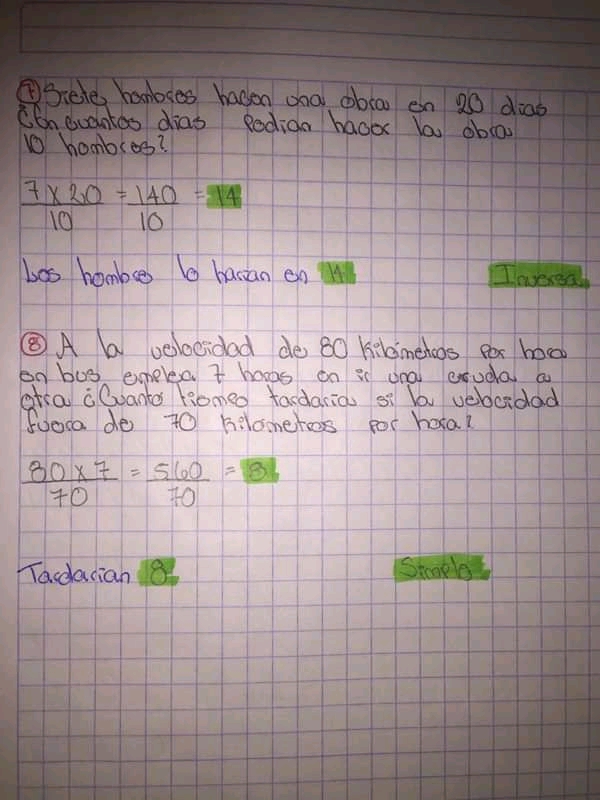 ⑦ Siete hombres hacen una obra en 20 dias
¿En cuantos dias Podian hacer la obra
10 hombres?
7 x 20 = 140 = 14
10 10
Los hombre lo harian en 14 Inversa
⑧ A la velocidad de 80 Kilometros por hora
en bus emplea 7 horas en ir una ciuda a
otra ¿Cuanto tiempo tardaria si la velocidad
fuera de 70 Kilometros por hora?
80 x 7 = 560 = 8
70 70
Tardarian 8 Simple